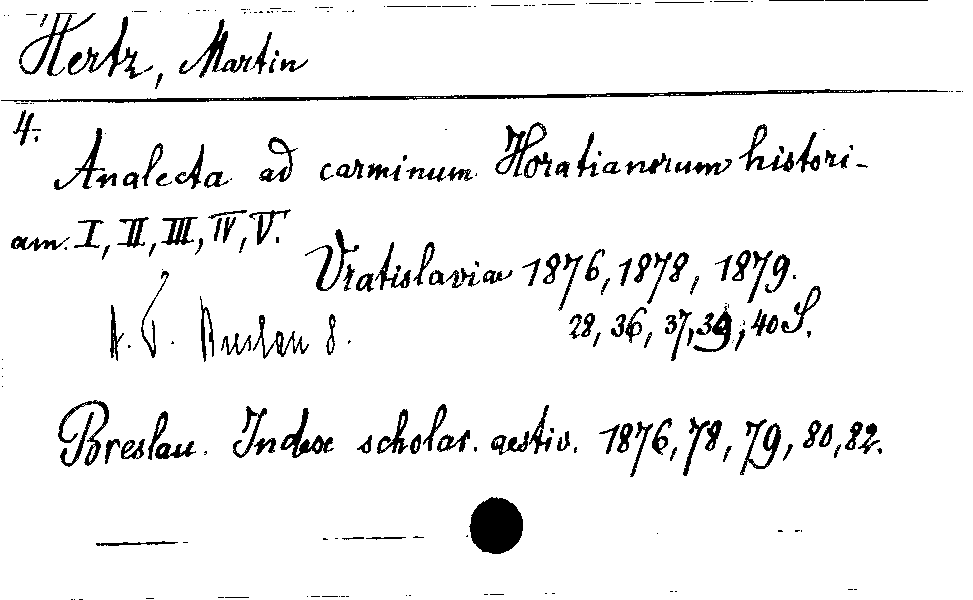 Hertz, Martin
4.
Analecta ad carminum Horatianorum histori-
am. I, II, III, IV, V.
Vratislaviae 1876, 1878, 1879.
28, 36, 37, 39, 40 S.
Breslau 8.
Breslau. Index scholar. aestiv. 1876, 78, 79, 80, 82.